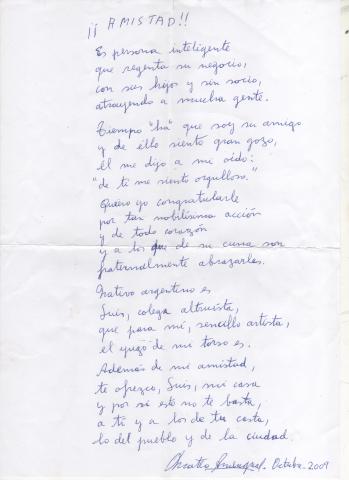 ¡¡ AMISTAD!!
Es persona inteligente
que regenta su negocio,
con sus hijos y sin socio,
atrayendo a mucha gente.
Tiempo "ha" que soy su amigo
y de ello siento gran gozo,
él me dijo a mi oido:
"de ti me siento orgulloso."
Quiero yo congratularle
por tan nobilísima acción
y de todo corazón
y a los que de su cuna son
fraternalmente abrazarles.
Nativo argentino es
Luis, colega altruista,
que para mí, sencillo artista,
el de mi torso es.
Además de mi amistad,
te ofrezco, Luis, mi casa
y por si esto no te basta,
a ti y a los de tu casta,
lo del pueblo y de la ciudad.
Octubre-2009